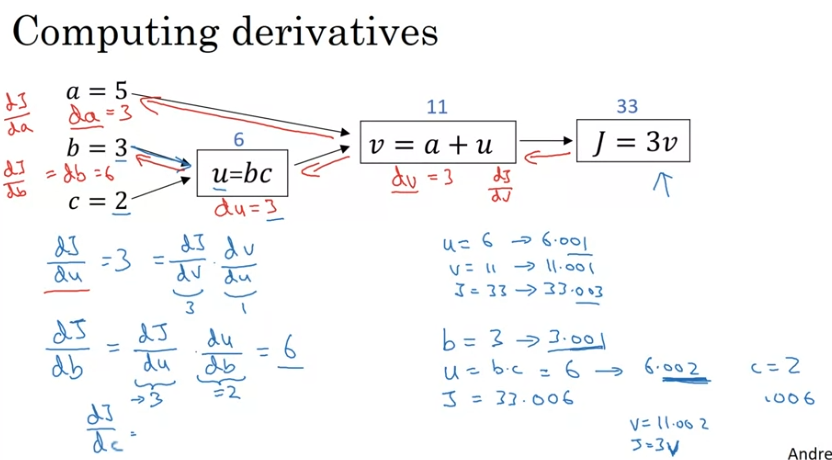 Computing derivatives
a = 5
dJ/da
da = 3
b = 3
dJ/db = db = 6
c = 2
6
u=bc
du = 3
11
v = a + u
dv = 3 dJ/dv
33
J = 3v
dJ/du = 3 = dJ/dv · dv/du
3 1
dJ/db = dJ/du · du/db = 6
→3 =2
dJ/dc =
u = 6 → 6.001
v = 11 → 11.001
J = 33 → 33.003
b = 3 → 3.001
u = b·c = 6 → 6.002 c = 2
J = 33.006 .006
v = 11.002
J = 3v
Andre